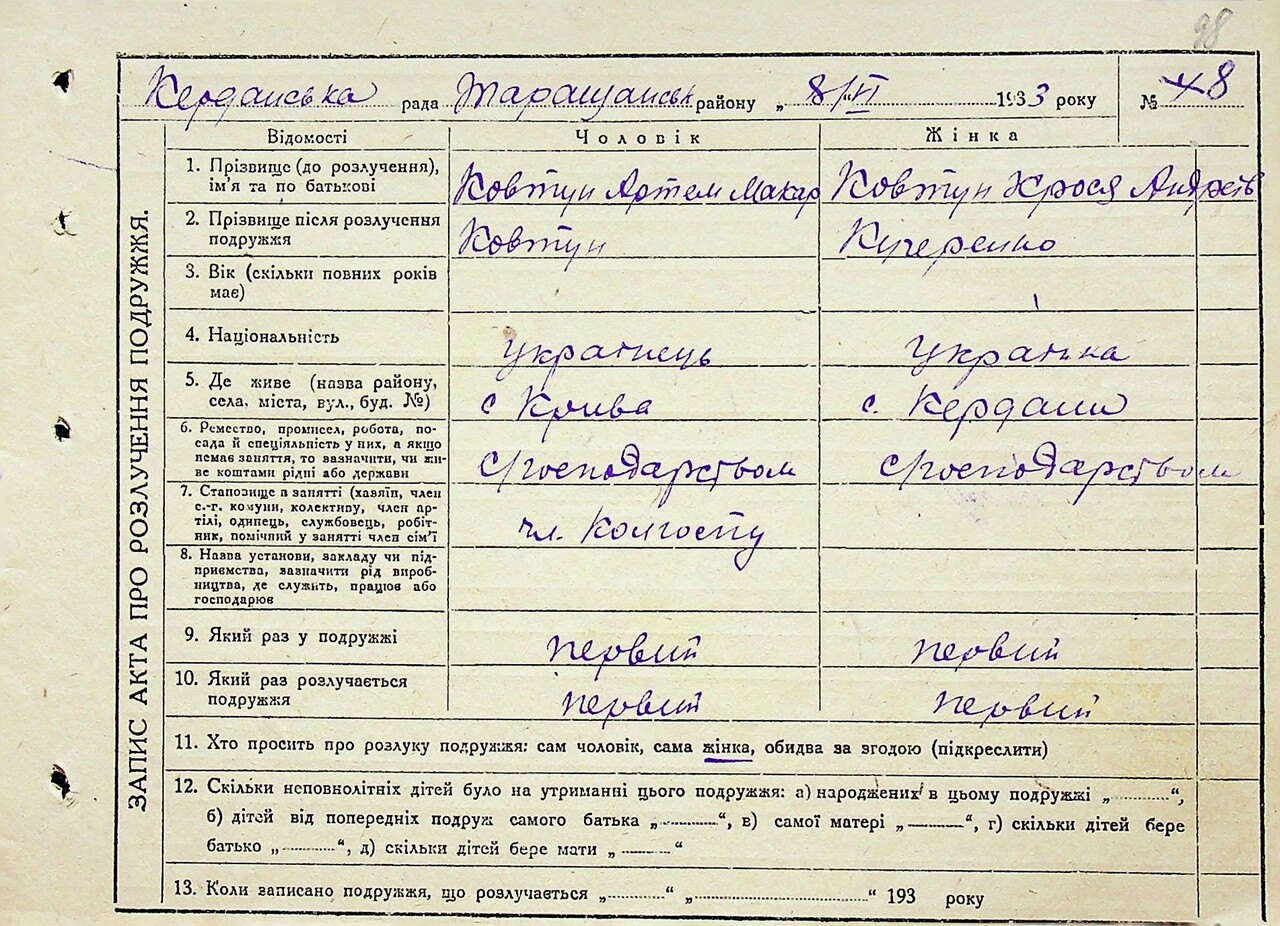 98
Керданська рада Таращанськ району „ 8/VI 1933 року № 48
ЗАПИС АКТА ПРО РОЗЛУЧЕННЯ ПОДРУЖЖЯ.
Відомості Чоловік Жінка
1. Прізвище (до розлучення), ім'я та по батькові Ковтун Артем Макар Ковтун Хрося Андріїв
2. Прізвище після розлучення подружжя Ковтун Кучеренко
3. Вік (скільки повних років має)
4. Національність Українець Українка
5. Де живе (назва району, села, міста, вул., буд. №) с Крива с. Кердани
6. Ремество, промисел, робота, посада й спеціяльність у них, а якщо немає заняття, то зазначити, чи живе коштами рідні або держави с/господарством с/господарством
7. Становище в занятті (хазяїн, член с.-г. комуни, колективу, член артілі, одинець, службовець, робітник, помічний у занятті член сім'ї чл. Колгоспу
8. Назва установи, закладу чи підприємства, зазначити рід виробництва, де служить, працює або господарює
9. Який раз у подружжі первий первий
10. Який раз розлучається подружжя первий первий
11. Хто просить про розлуку подружжя: сам чоловік, сама жінка, обидва за згодою (підкреслити)
12. Скільки неповнолітніх дітей було на утриманні цього подружжя: а) народжених в цьому подружжі „ “,
б) дітей від попередніх подруж самого батька „ “, в) самої матері „ “, г) скільки дітей бере
батько „ “, д) скільки дітей бере мати „ “
13. Коли записано подружжя, що розлучається „ “ „ “ 193 року